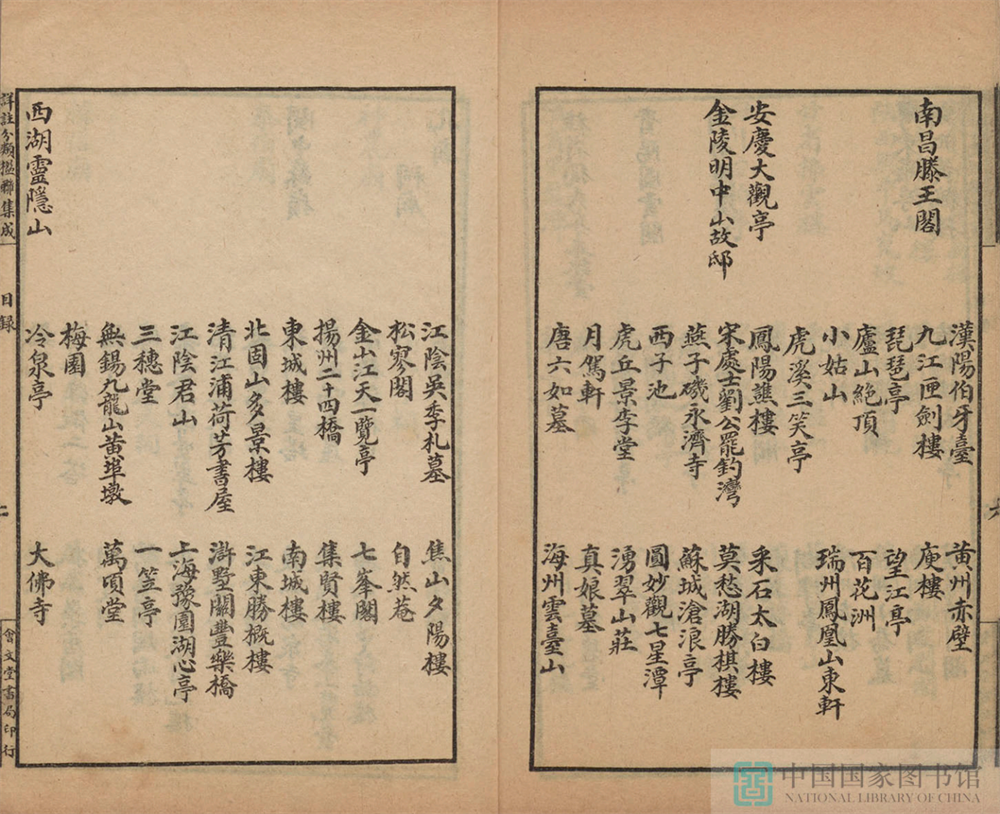 漢陽伯牙臺 黃州赤壁
南昌滕王閣 九江匣劍樓 庾樓
琵琶亭 望江亭
廬山絕頂 百花洲
小姑山 瑞州鳳凰山東軒
虎溪三笑亭
安慶大觀亭 鳳陽譙樓 采石太白樓
金陵明中山故邸 宋處士劉公罷釣灣 莫愁湖勝棋樓
燕子磯永濟寺 蘇城滄浪亭
西子池 圓妙觀七星潭
虎丘景李堂 湧翠山莊
月駕軒 真娘墓
唐六如墓 海州雲臺山
江陰吳季札墓 焦山夕陽樓
松寥閣 自然菴
金山江天一覽亭 七峯閣
揚州二十四橋 集賢樓
東城樓 南城樓
北固山多景樓 江東勝概樓
清江浦荷芳書屋 滸墅關豐樂橋
江陰君山 上海豫園湖心亭
三穗堂 一笠亭
無錫九龍山黃埠墩 萬頃堂
梅園
西湖靈隱山 冷泉亭 大佛寺
詳註分類楹聯集成 目錄 會文堂書局印行
中国国家图书馆
NATIONAL LIBRARY OF CHINA